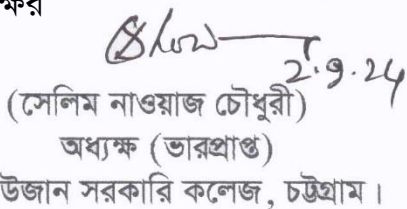 ক্ষর
2.9.24
(সেলিম নাওয়াজ চৌধুরী)
অধ্যক্ষ (ভারপ্রাপ্ত)
উজান সরকারি কলেজ, চট্টগ্রাম।